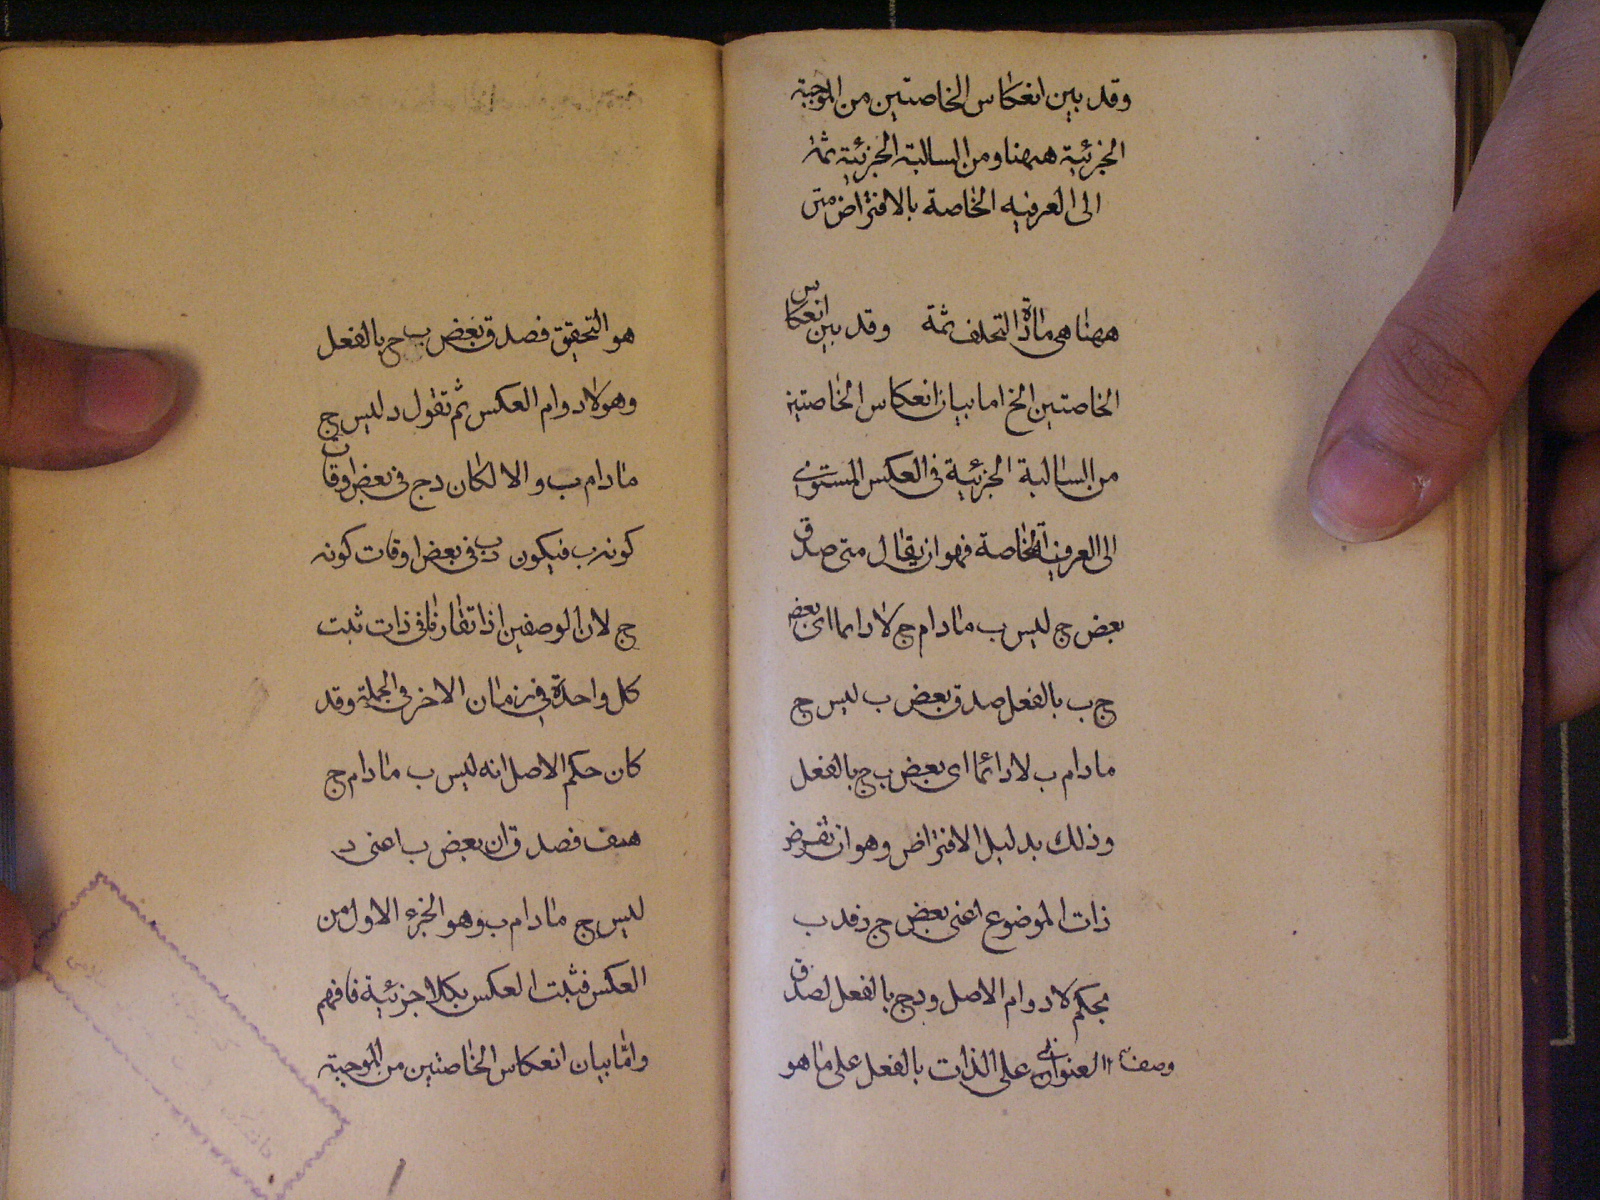 وقد بين انعكاس الخاصتين من الموجبة
الجزئية ههنا ومن السالبة الجزئية ثمة
الى العرفية الخاصة بالافتراض متن
ههنا هي مادة التخلف ثمة وقد بين انعكاس
الخاصتين الخ اما بيان انعكاس الخاصتين
من السالبة الجزئية في العكس المستوي
الى العرفية الخاصة فهو ان يقال متى صدق
بعض ج ليس ب مادام ج لا دائما اى بعض
ج ب بالفعل صدق بعض ب ليس ج
مادام ب لا دائما اى بعض ب ج بالفعل
وذلك بدليل الافتراض وهو ان نفرض
ذات الموضوع اعنى بعض ج د فد ب
بحكم لا دوام الاصل ود ج بالفعل لصدق
وصف العنواني على الذات بالفعل على ما هو
هو التحقيق فصدق بعض ب ج بالفعل
وهو لا دوام العكس ثم نقول د ليس ج
مادام ب والا لكان د ج في بعض اوقات
كونه ب فيكون د ب في بعض اوقات كونه
ج لان الوصفين اذا تقارنا في ذات ثبت
كل واحدة في زمان الاخر في الجملة وقد
كان حكم الاصل انه ليس ب مادام ج
هف فصدق ان بعض ب اعنى د
ليس ج مادام ب وهو الجزء الاول من
العكس فثبت العكس بكلا جزئية فافهم
واما بيان انعكاس الخاصتين من الموجبة